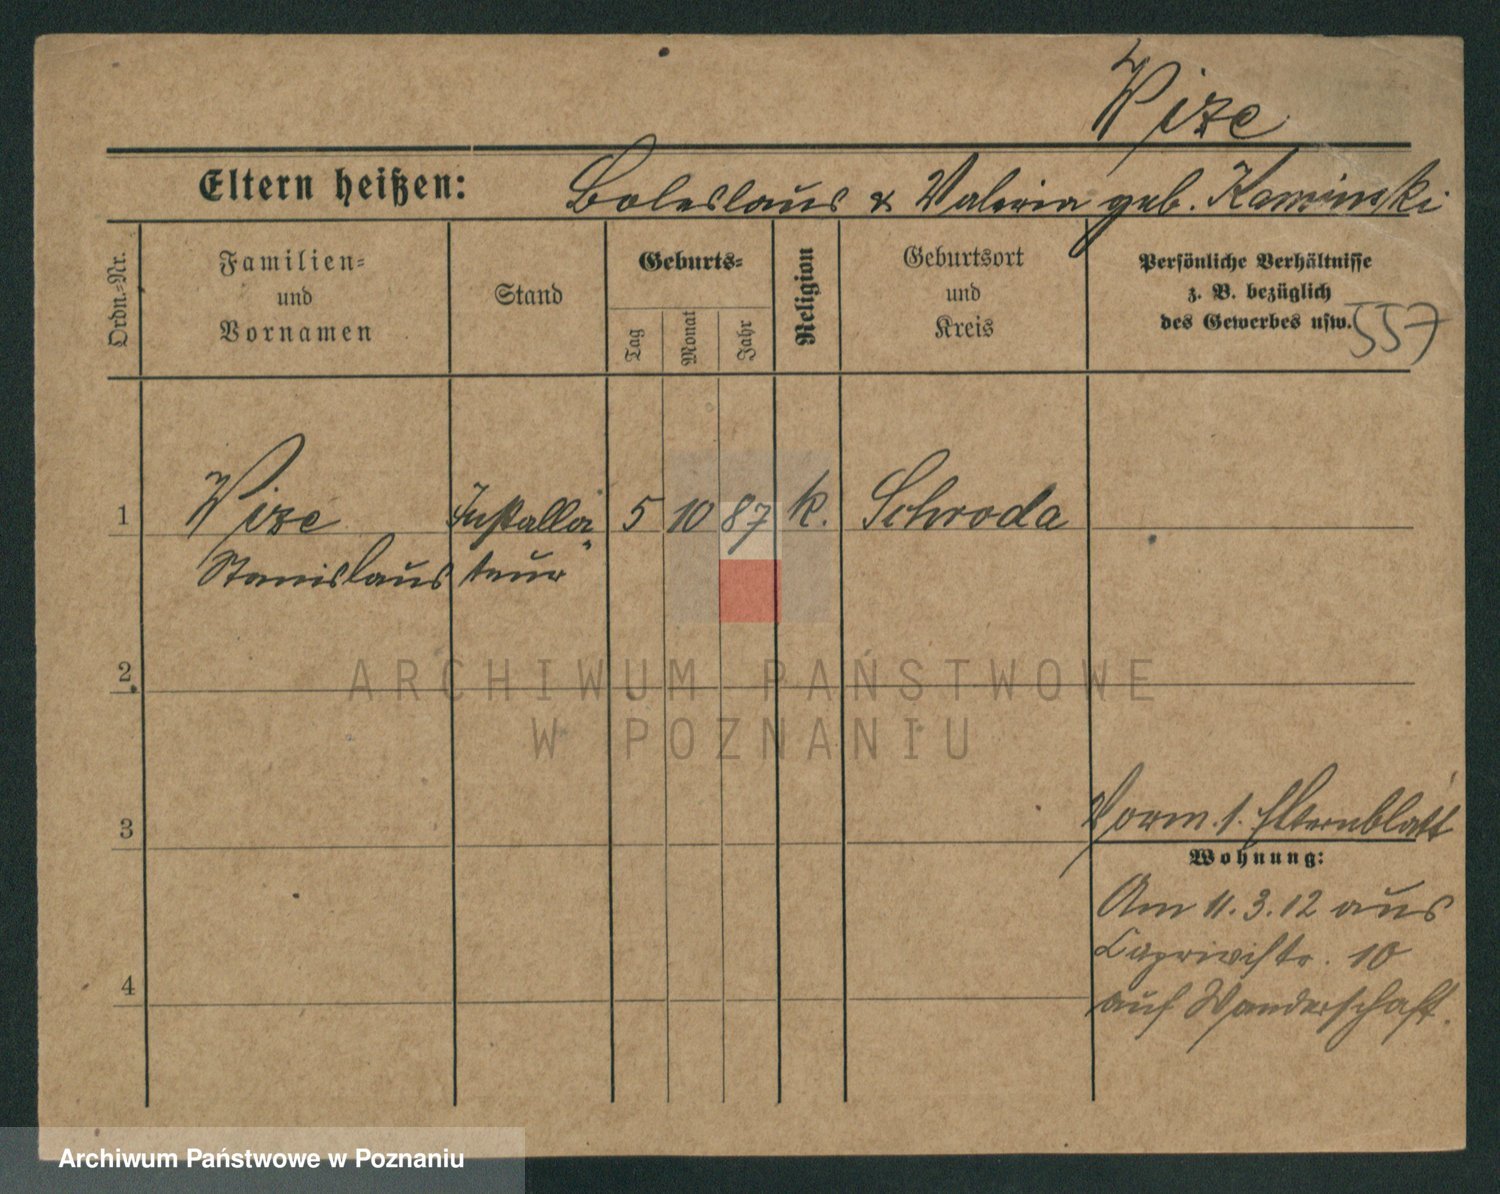 Wize
Eltern heißen: Boleslaus & Valeria geb. Kaminski
Ordn.-Nr.
Familien-
und
Vornamen
Stand
Geburts-
Tag
Monat
Jahr
Religion
Geburtsort
und
Kreis
Persönliche Verhältnisse
z. B. bezüglich
des Gewerbes usw.
557
1 Wize Installa 5 10 87 k. Schroda
Stanislaus teur
2
ARCHIWUM PAŃSTWOWE
W POZNANIU
3
Vorm. s. Elternblatt
Wohnung:
Am 11.3.12 aus
Caprivistr. 10
4
auf Wanderschaft.
Archiwum Państwowe w Poznaniu